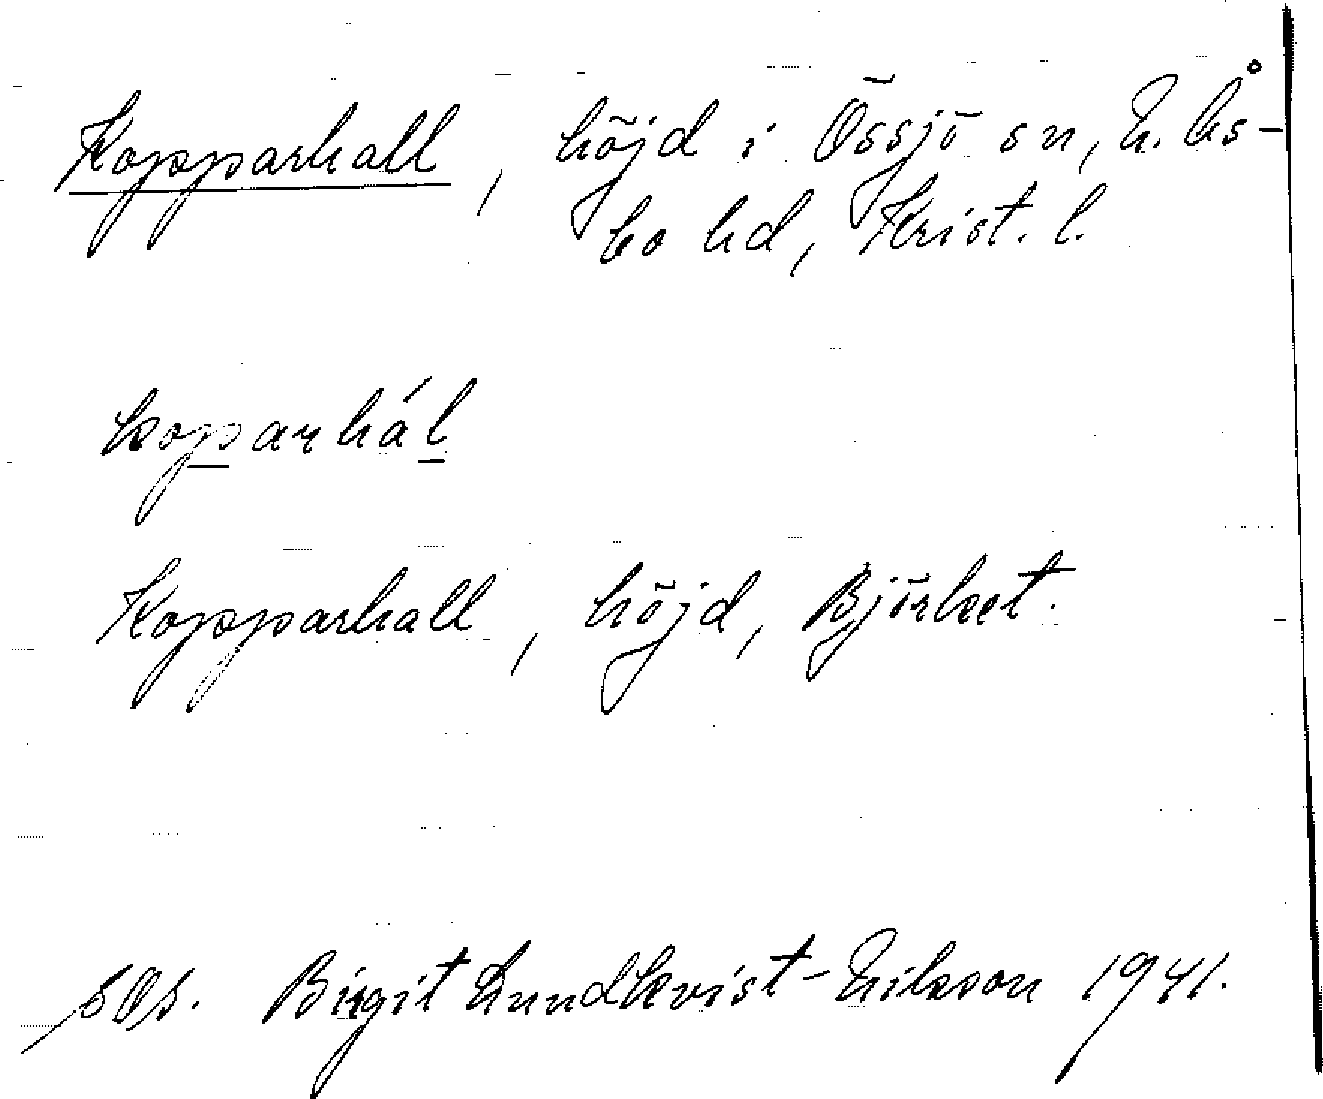 Kopparhall, höjd i Össjö sn, N. Ås-
bo hd, Krist. l.
koparhál
Kopparhall, höjd, Björket.
Birgit Lundkvist-Nilsson 1941.